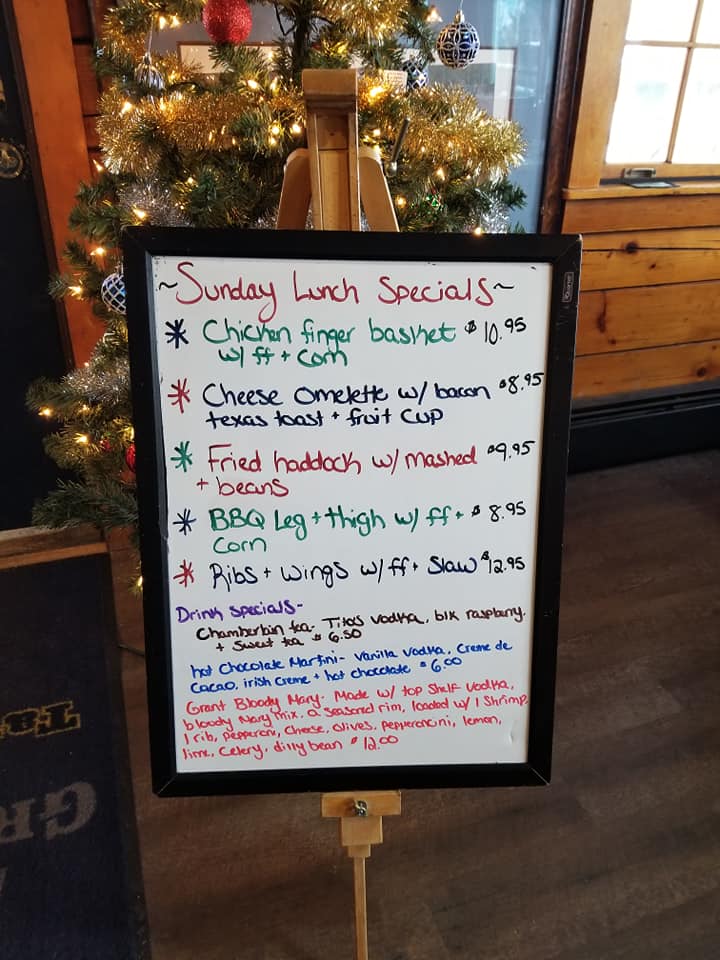 ~Sunday Lunch Specials~
* Chicken finger basket $10.95
w/ ff + corn
* Cheese omelette w/ bacon $8.95
texas toast + fruit cup
* Fried haddock w/ mashed $9.95
+ beans
* BBQ Leg + thigh w/ ff + $8.95
corn
* Ribs + wings w/ ff + Slaw $12.95
Drink specials-
Chamberlin tea- Titos vodka, blk raspberry,
+ Sweet tea $6.50
hot Chocolate Martini- Vanilla Vodka, Creme de
Cacao, irish creme + hot chocolate $6.00
Grant Bloody Mary- Made w/ top shelf vodka,
bloody Mary mix, a seasoned rim, loaded w/ 1 Shrimp,
1 rib, pepperoni, cheese, olives, pepperoncini, lemon,
lime, celery, dilly bean $12.00